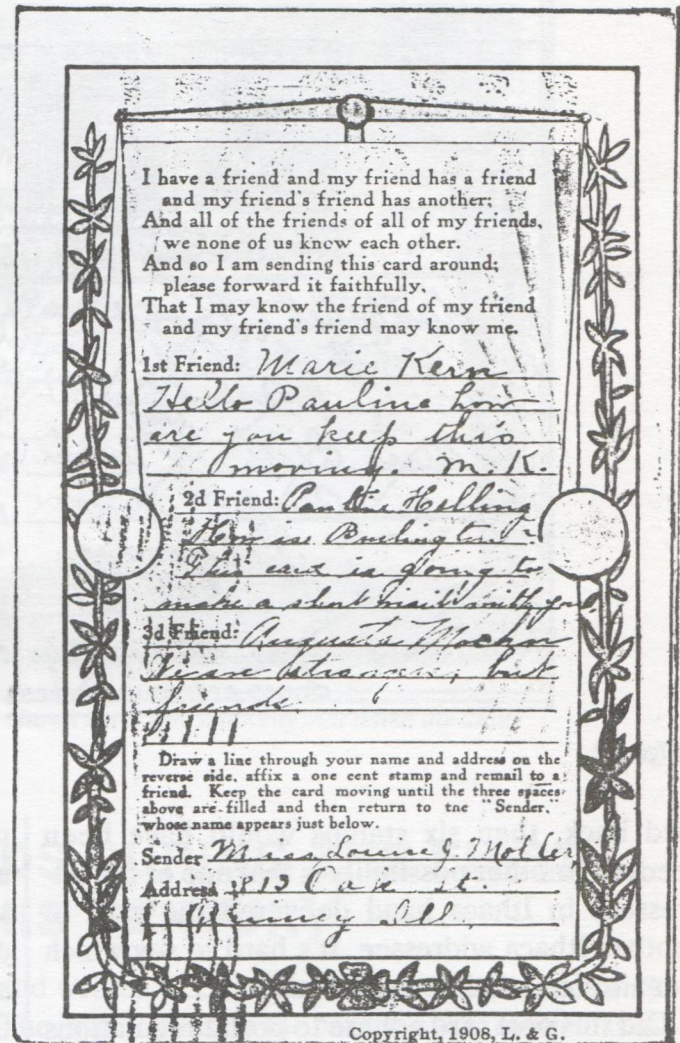 I have a friend and my friend has a friend
and my friend's friend has another;
And all of the friends of all of my friends,
we none of us know each other.
And so I am sending this card around;
please forward it faithfully,
That I may know the friend of my friend
and my friend's friend may know me.
1st Friend: Marie Kern
Hello Pauline how
are you keep this
moving. M. K.
2d Friend: Pauline Helling
How is Burlington
This card is going to
make a short visit with you
3d Friend: Augusta
We are strangers, but
friends
Draw a line through your name and address on the
reverse side, affix a one cent stamp and remail to a
friend. Keep the card moving until the three spaces
above are filled and then return to the "Sender,"
whose name appears just below.
Sender Miss
Address 813 Oak St.
Quincy Ill.
Copyright, 1908, L. & G.